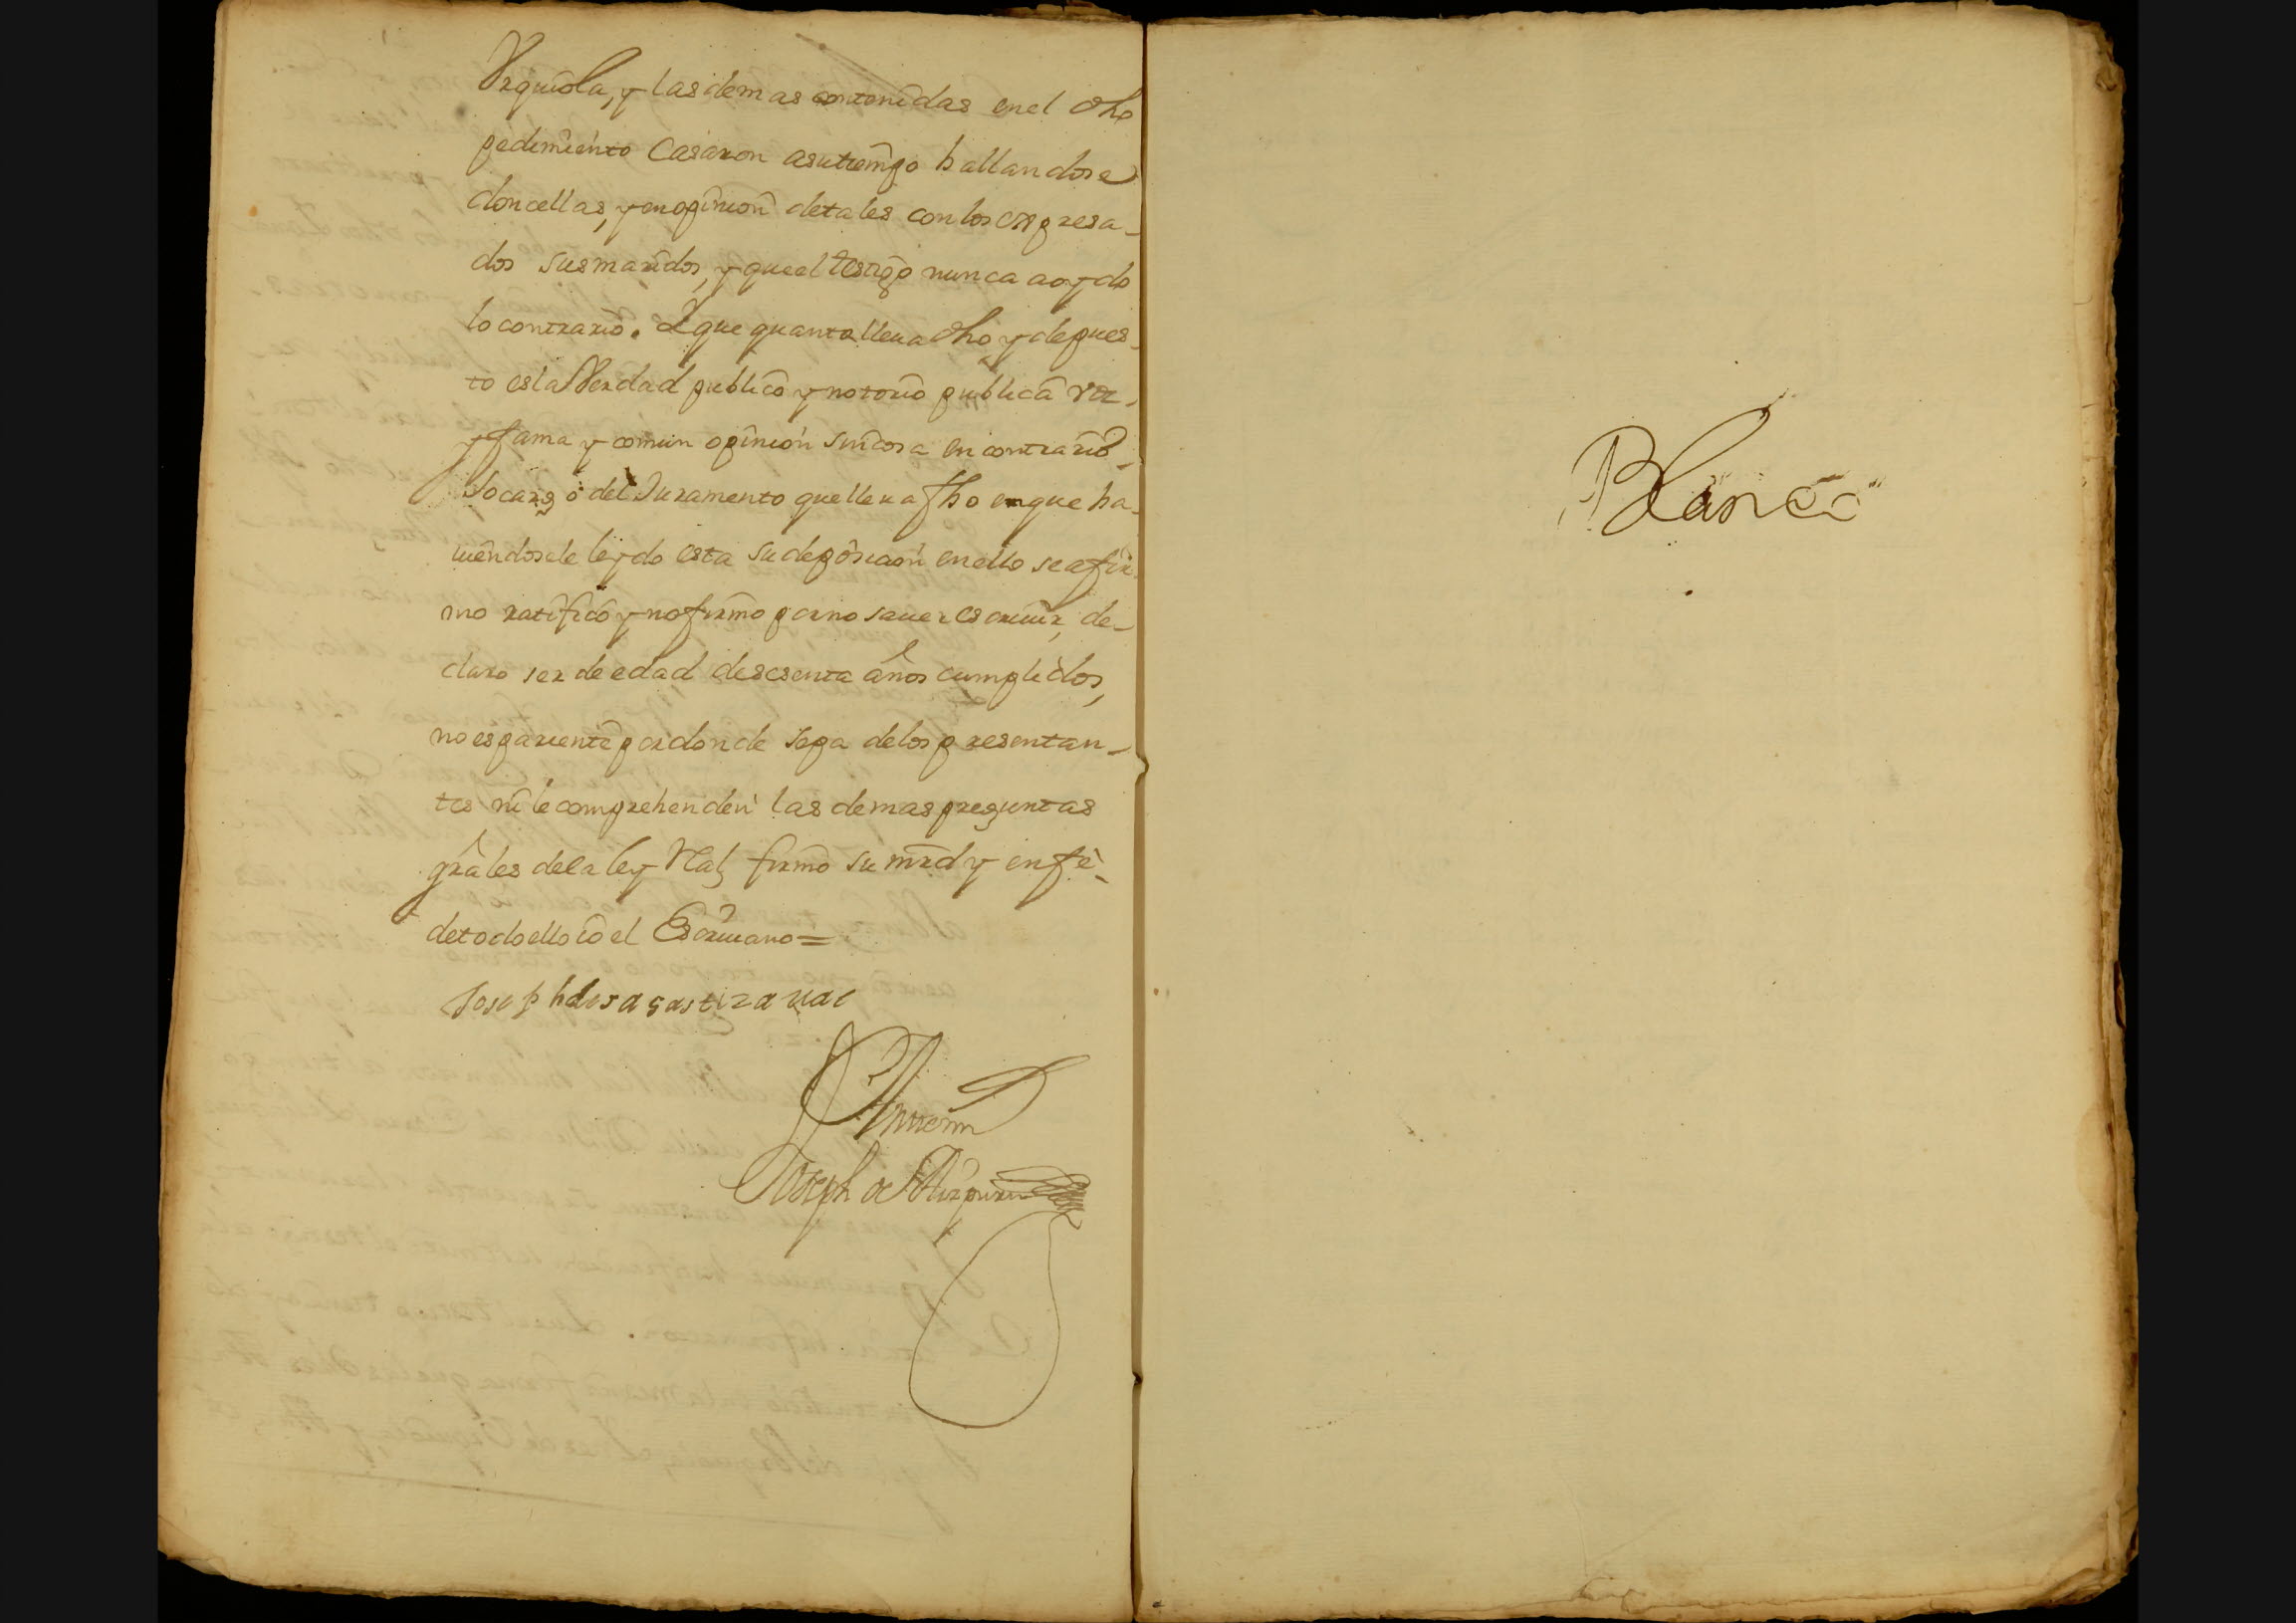 Vrquiola, y las demas contenidas en el dho
pedimiento Casaron asutiempo hallandose
doncellas, y en opinion detales con los expresa-
dos sus maridos, y que el testigo nunca a oydo
lo contrario. Y que quanto lleua dho y depues-
to es la Verdad publico y notorio publica voz
y fama y comun opinion sin cosa en contrario
so cargo del Juramento que lleua fho en que ha-
uiendosele leydo esta su deposicion en ello se afir
mo ratifico y no firmo por no sauer escriuir, de-
claro ser de edad de sesenta años cumplidos,
no es pariente por donde sepa de los presentan-
tes ni le comprehenden las demas preguntas
grales de la ley Ral, firmo su mrd y en fe
de todo ello io el Escriuano =
Joseph de sagastizaual
Antemi
Joseph de Aizpuru
Blanco